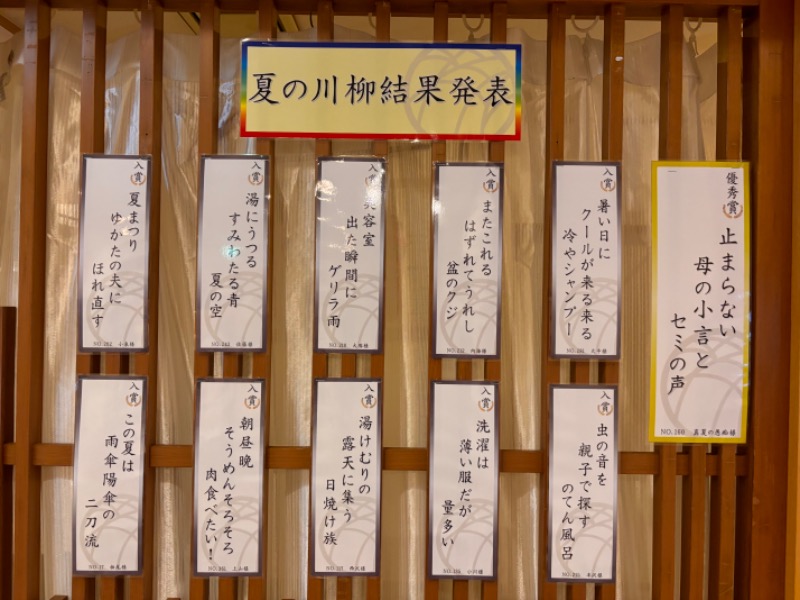 夏の川柳結果発表
優秀賞
止まらない
母の小言と
セミの声
入賞
暑い日に
クールが来る来る
冷やシャンプー
入賞
またこれる
はずれてうれし
盆のクジ
入賞
美容室
出た瞬間に
ゲリラ雨
入賞
湯にうつる
すみわたる青
夏の空
入賞
夏まつり
ゆかたの夫に
ほれ直す
入賞
虫の音を
親子で探す
のてん風呂
入賞
洗濯は
薄い服だが
量多い
入賞
湯けむりの
露天に集う
日焼け族
入賞
朝昼晩
そうめんそろそろ
肉食べたい!
入賞
この夏は
雨傘陽傘の
二刀流